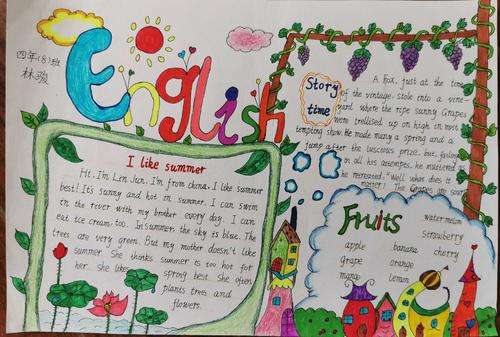 四年(8)班
林骏
English
I like summer
Hi, I'm Lin Jun. I'm from china. I like summer
best! It's sunny and hot in summer. I can swim
in the river with my brother every day. I can
eat ice cream, too. In summer, the sky is blue. The
trees are very green. But my mother doesn't like
summer. She thinks summer is too hot for
her. She likes spring best. She often
plants trees and
flowers.
Story
time
A Fox, just at the time
of the vintage, stole into a vine-
yard where the ripe sunny Grapes
were trellised up on high in most
tempting show. He made many a spring and a
jump after the luscious prize; but, failing
in all his attempts, he muttered as
he retreated, "Well! what does it
matter! The Grapes are sour
Fruits
watermelon
strawberry
apple banana cherry
grape orange
mango lemon